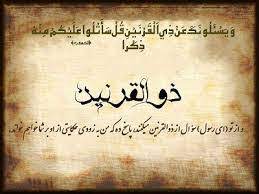 وَيَسْئَلُونَكَ عَنْ ذِي الْقَرْنَيْنِ قُلْ سَأَتْلُوا عَلَيْكُمْ مِنْهُ
ذِكْرًا
ذوالقرنین
و از تو (ای رسول) سؤال از ذوالقرنین میکنند، پاسخ ده که من به زودی حکایتی از او بر شما خواهم خواند.